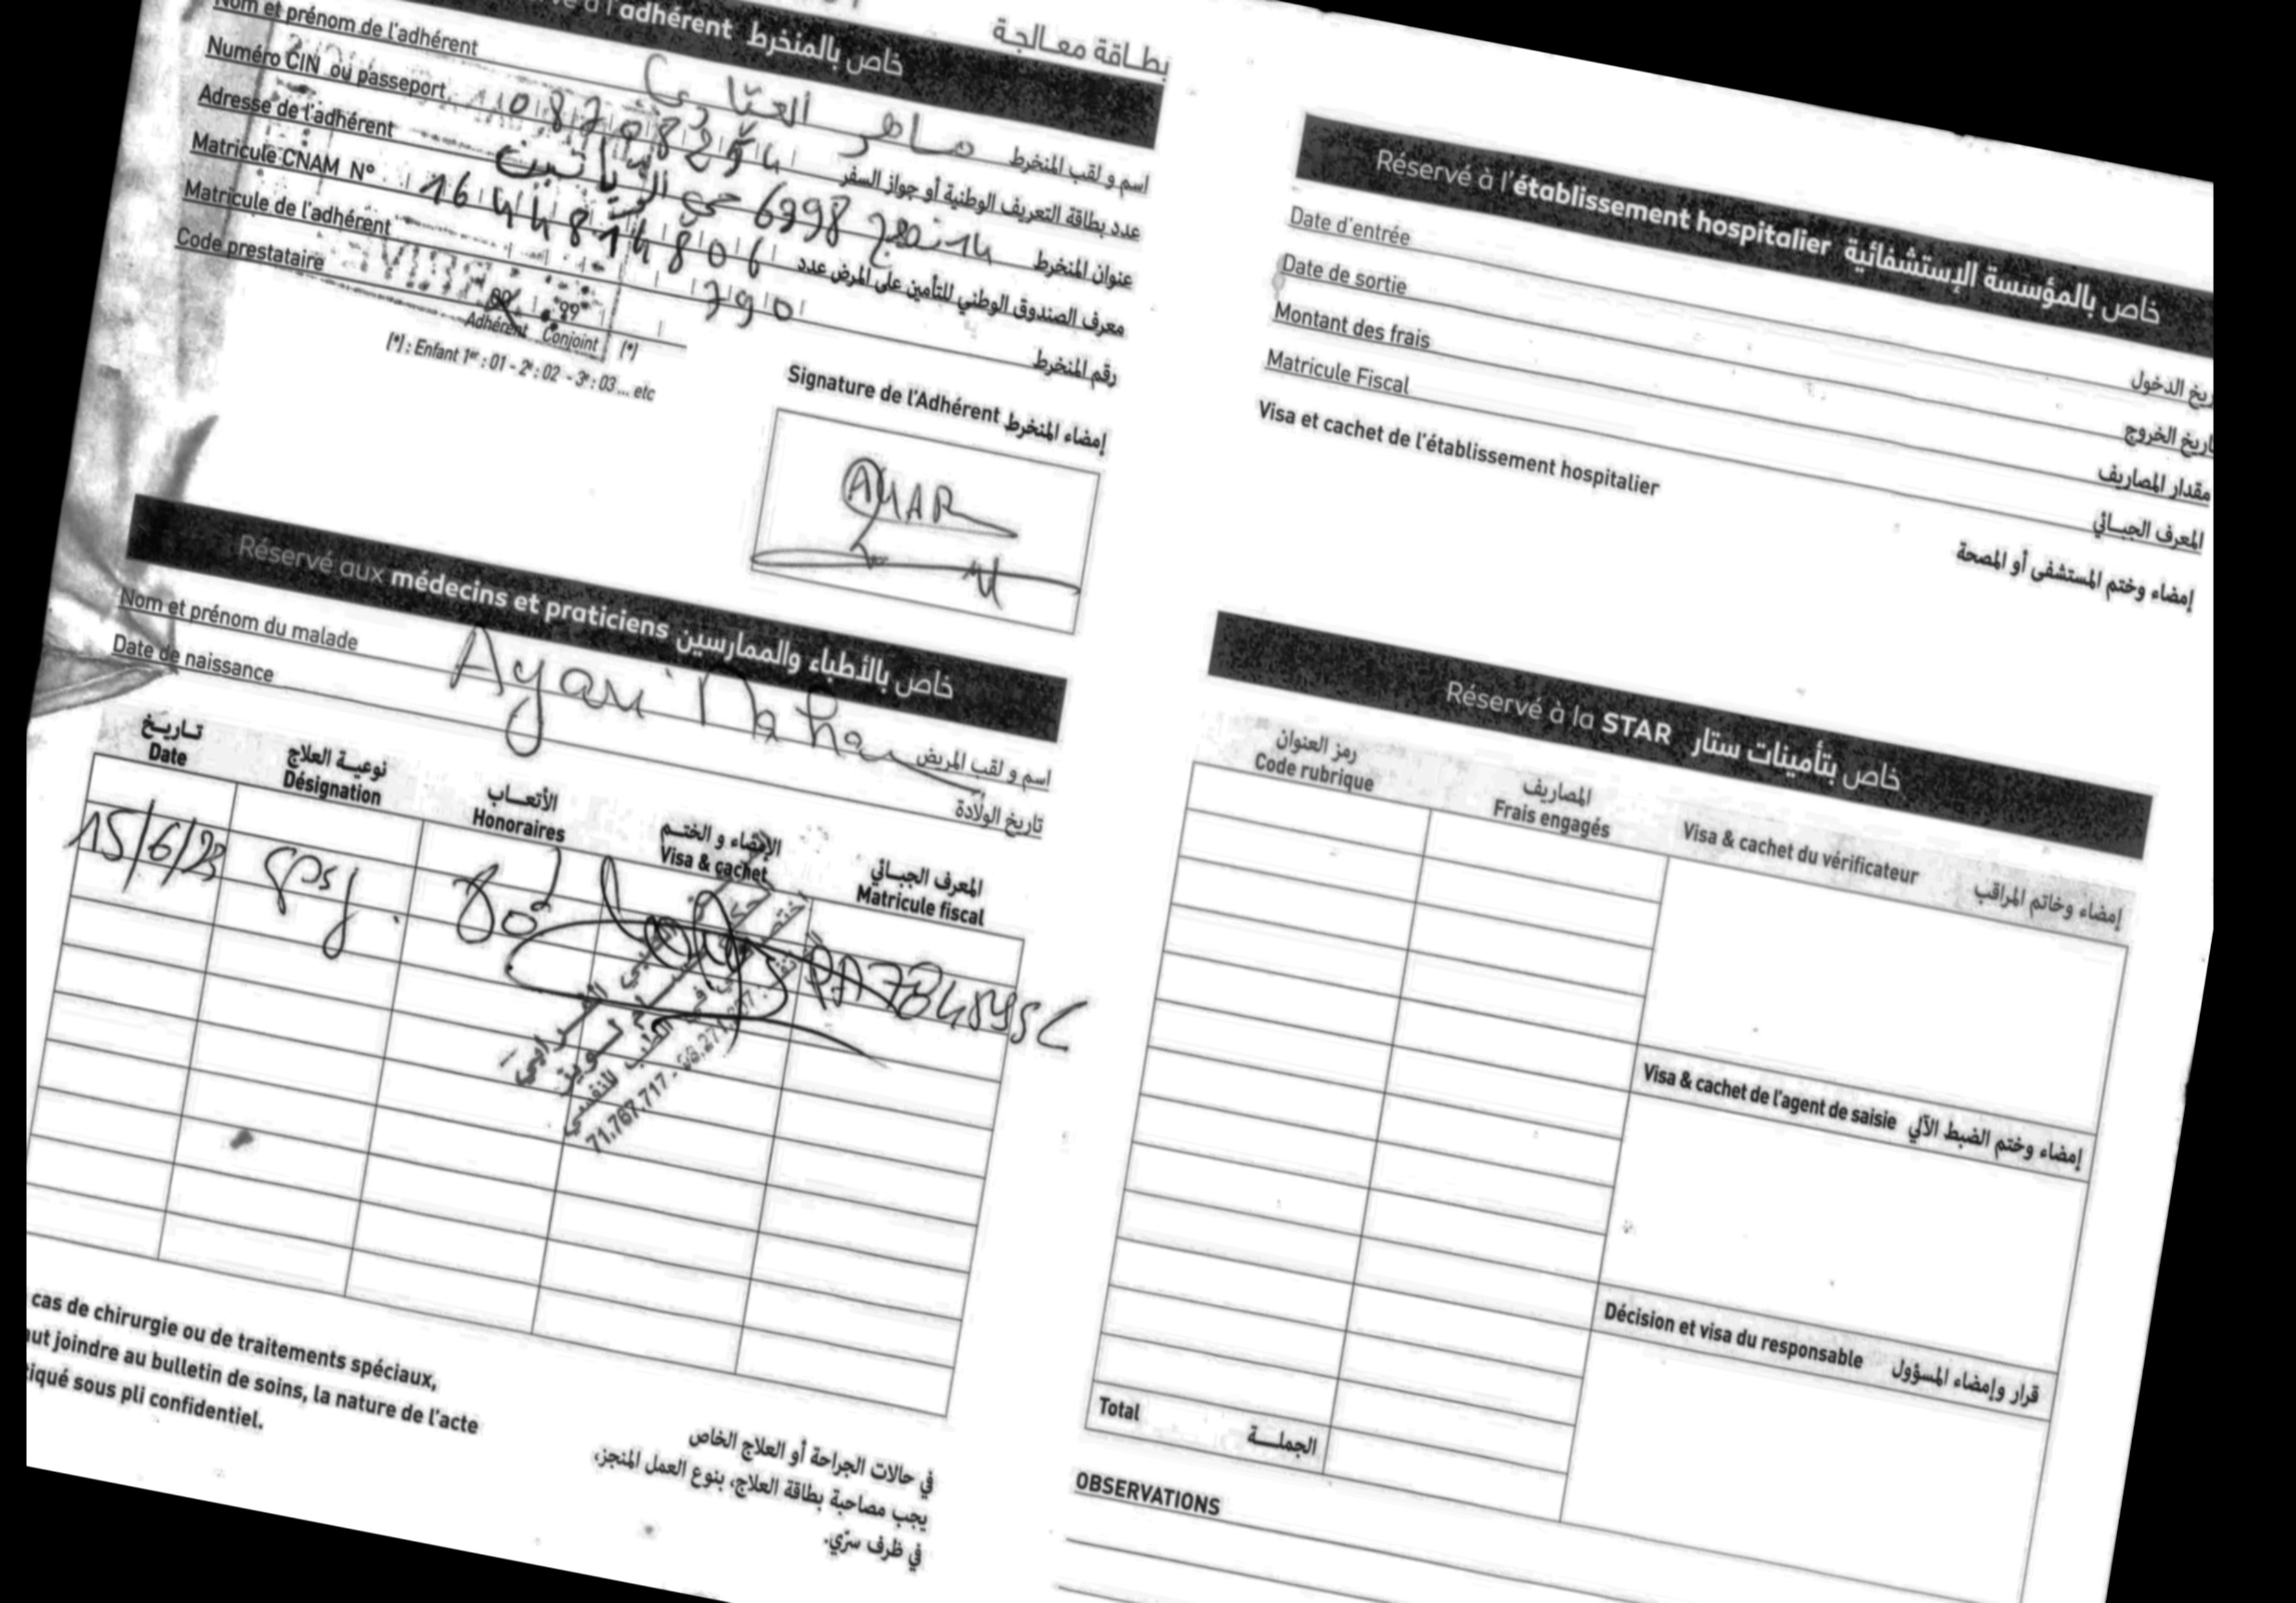 بطـاقة معـالجـة
à l'adhérent خاص بالمنخرط
Nom et prénom de l'adhérent ماهر العيّاري اسم و لقب المنخرط
Numéro CIN ou passeport عدد بطاقة التعريف الوطنية أو جواز السفر
Adresse de l'adhérent 14 نهج 6998 حي عنوان المنخرط
Matricule CNAM N° 1644814806 معرف الصندوق الوطني للتأمين على المرض عدد
Matricule de l'adhérent 790 رقم المنخرط
Code prestataire 99
Adhérent Conjoint (*)
(*) : Enfant 1er : 01 - 2e : 02 - 3e : 03 ... etc
Signature de l'Adhérent إمضاء المنخرط
Réservé aux médecins et praticiens خاص بالأطباء والممارسين
Nom et prénom du malade Ayari Maher اسم و لقب المريض
Date de naissance تاريخ الولادة
تـاريـخ نوعيـة العلاج الأتعـاب الإمضاء و الختـم المعرف الجبـائي
Date Désignation Honoraires Visa & cachet Matricule fiscal
15/6/23 Psy. 80d
71.767.717
cas de chirurgie ou de traitements spéciaux,
aut joindre au bulletin de soins, la nature de l'acte
tiqué sous pli confidentiel.
في حالات الجراحة أو العلاج الخاص
يجب مصاحبة بطاقة العلاج، بنوع العمل المنجز،
في ظرف سرّي.
Réservé à l'établissement hospitalier خاص بالمؤسسة الإستشفائية
Date d'entrée ريخ الدخول
Date de sortie اريخ الخروج
Montant des frais مقدار المصاريف
Matricule Fiscal المعرف الجبـائي
Visa et cachet de l'établissement hospitalier إمضاء وختم المستشفى أو المصحة
Réservé à la STAR خاص بتأمينات ستار
رمز العنوان المصاريف
Code rubrique Frais engagés Visa & cachet du vérificateur إمضاء وخاتم المراقب
Visa & cachet de l'agent de saisie إمضاء وختم الضبط الآلي
Décision et visa du responsable قرار وإمضاء المسؤول
Total الجملـــة
OBSERVATIONS